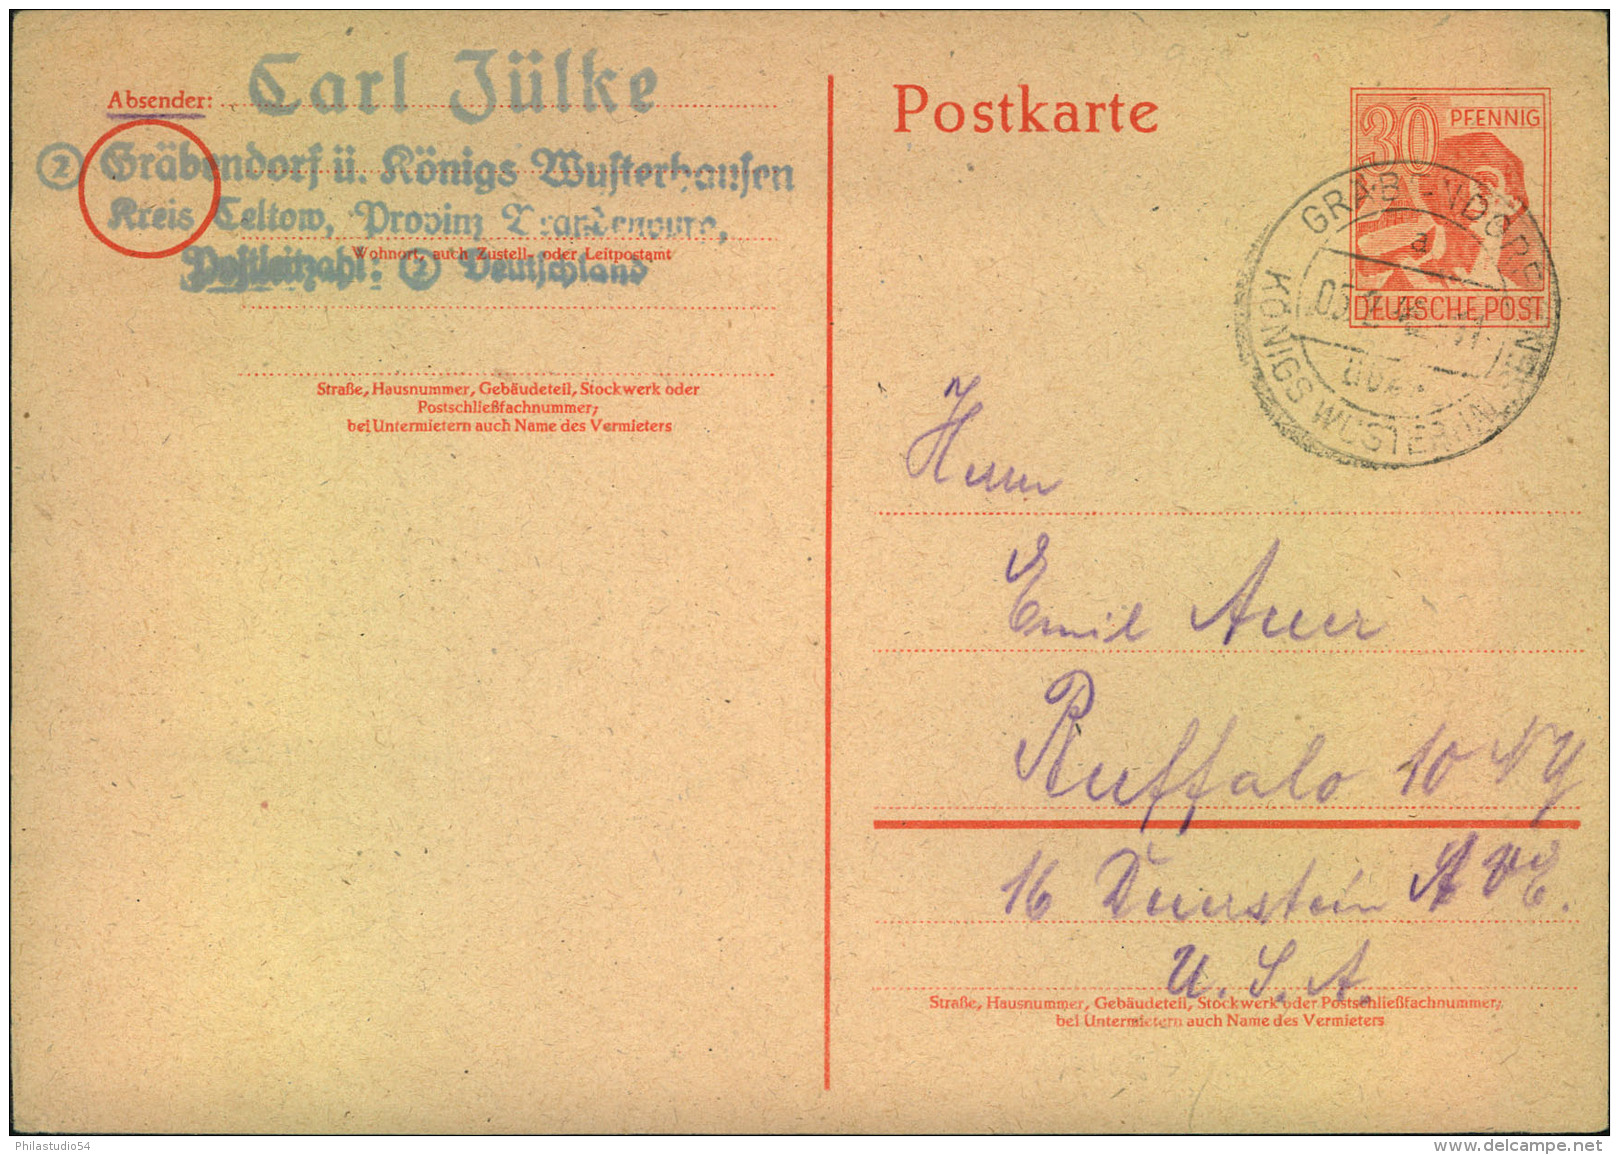 Absender: Carl Jülke
② Gräbendorf ü. Königs Wusterhausen
Kreis Teltow, Provinz Brandenburg,
Wohnort, auch Zustell- oder Leitpostamt
Postleitzahl: ② Deutschland
Straße, Hausnummer, Gebäudeteil, Stockwerk oder
Postschließfachnummer;
bei Untermietern auch Name des Vermieters
Postkarte
30 PFENNIG
DEUTSCHE POST
GRÄBENDORF
a
ÜBER
KÖNIGS WUSTERHAUSEN
Herrn
Emil Auer
Buffalo 10 NY
16 AVE.
U.S.A.
Straße, Hausnummer, Gebäudeteil, Stockwerk oder Postschließfachnummer;
bei Untermietern auch Name des Vermieters
Philastudio54
delcampe.net